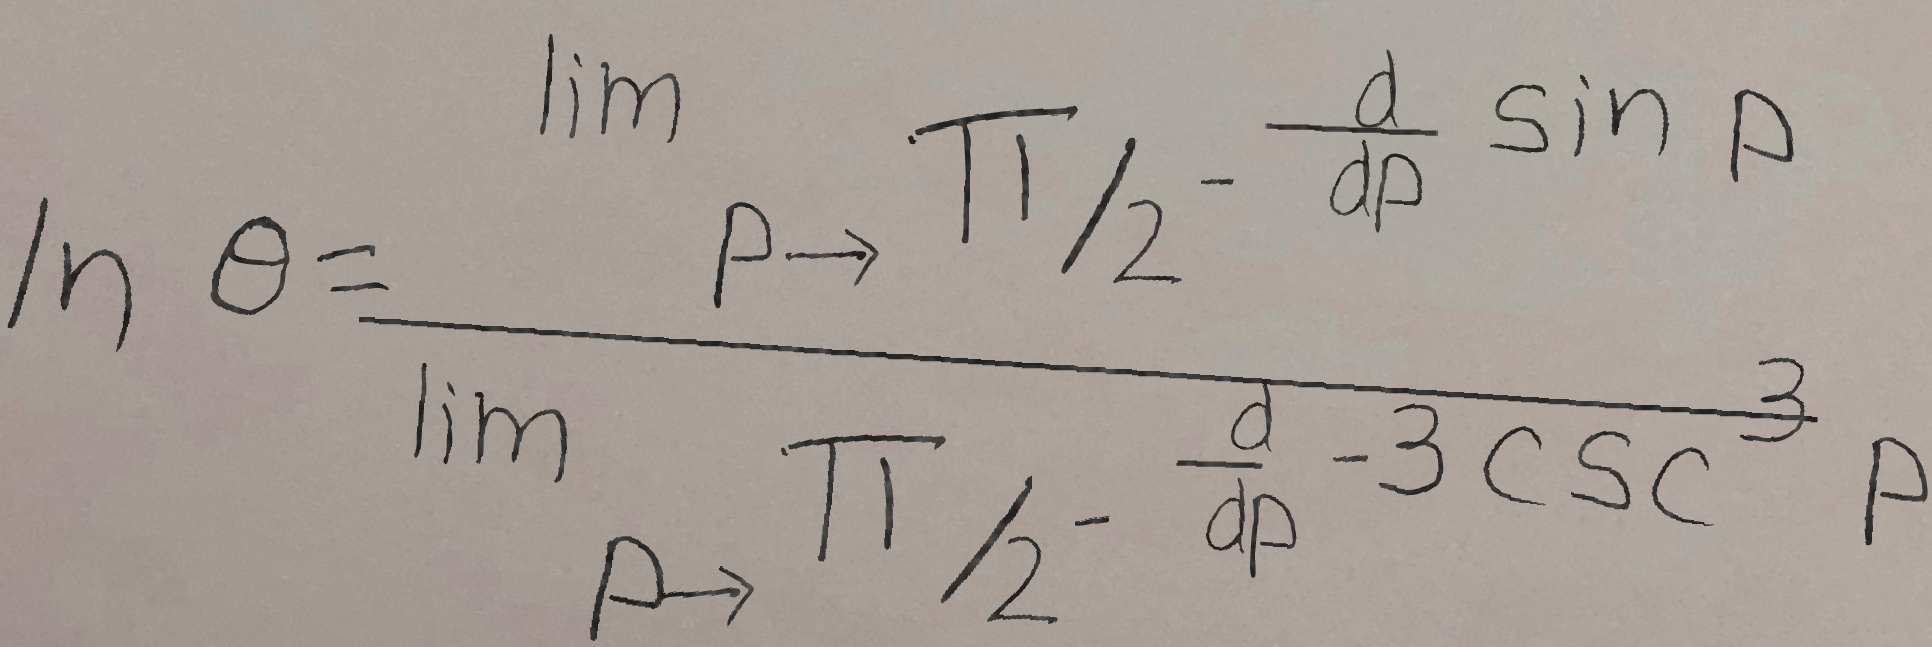 ln θ = lim p→π/2⁻ d/dp sin p
lim p→π/2⁻ d/dp -3 csc³ p